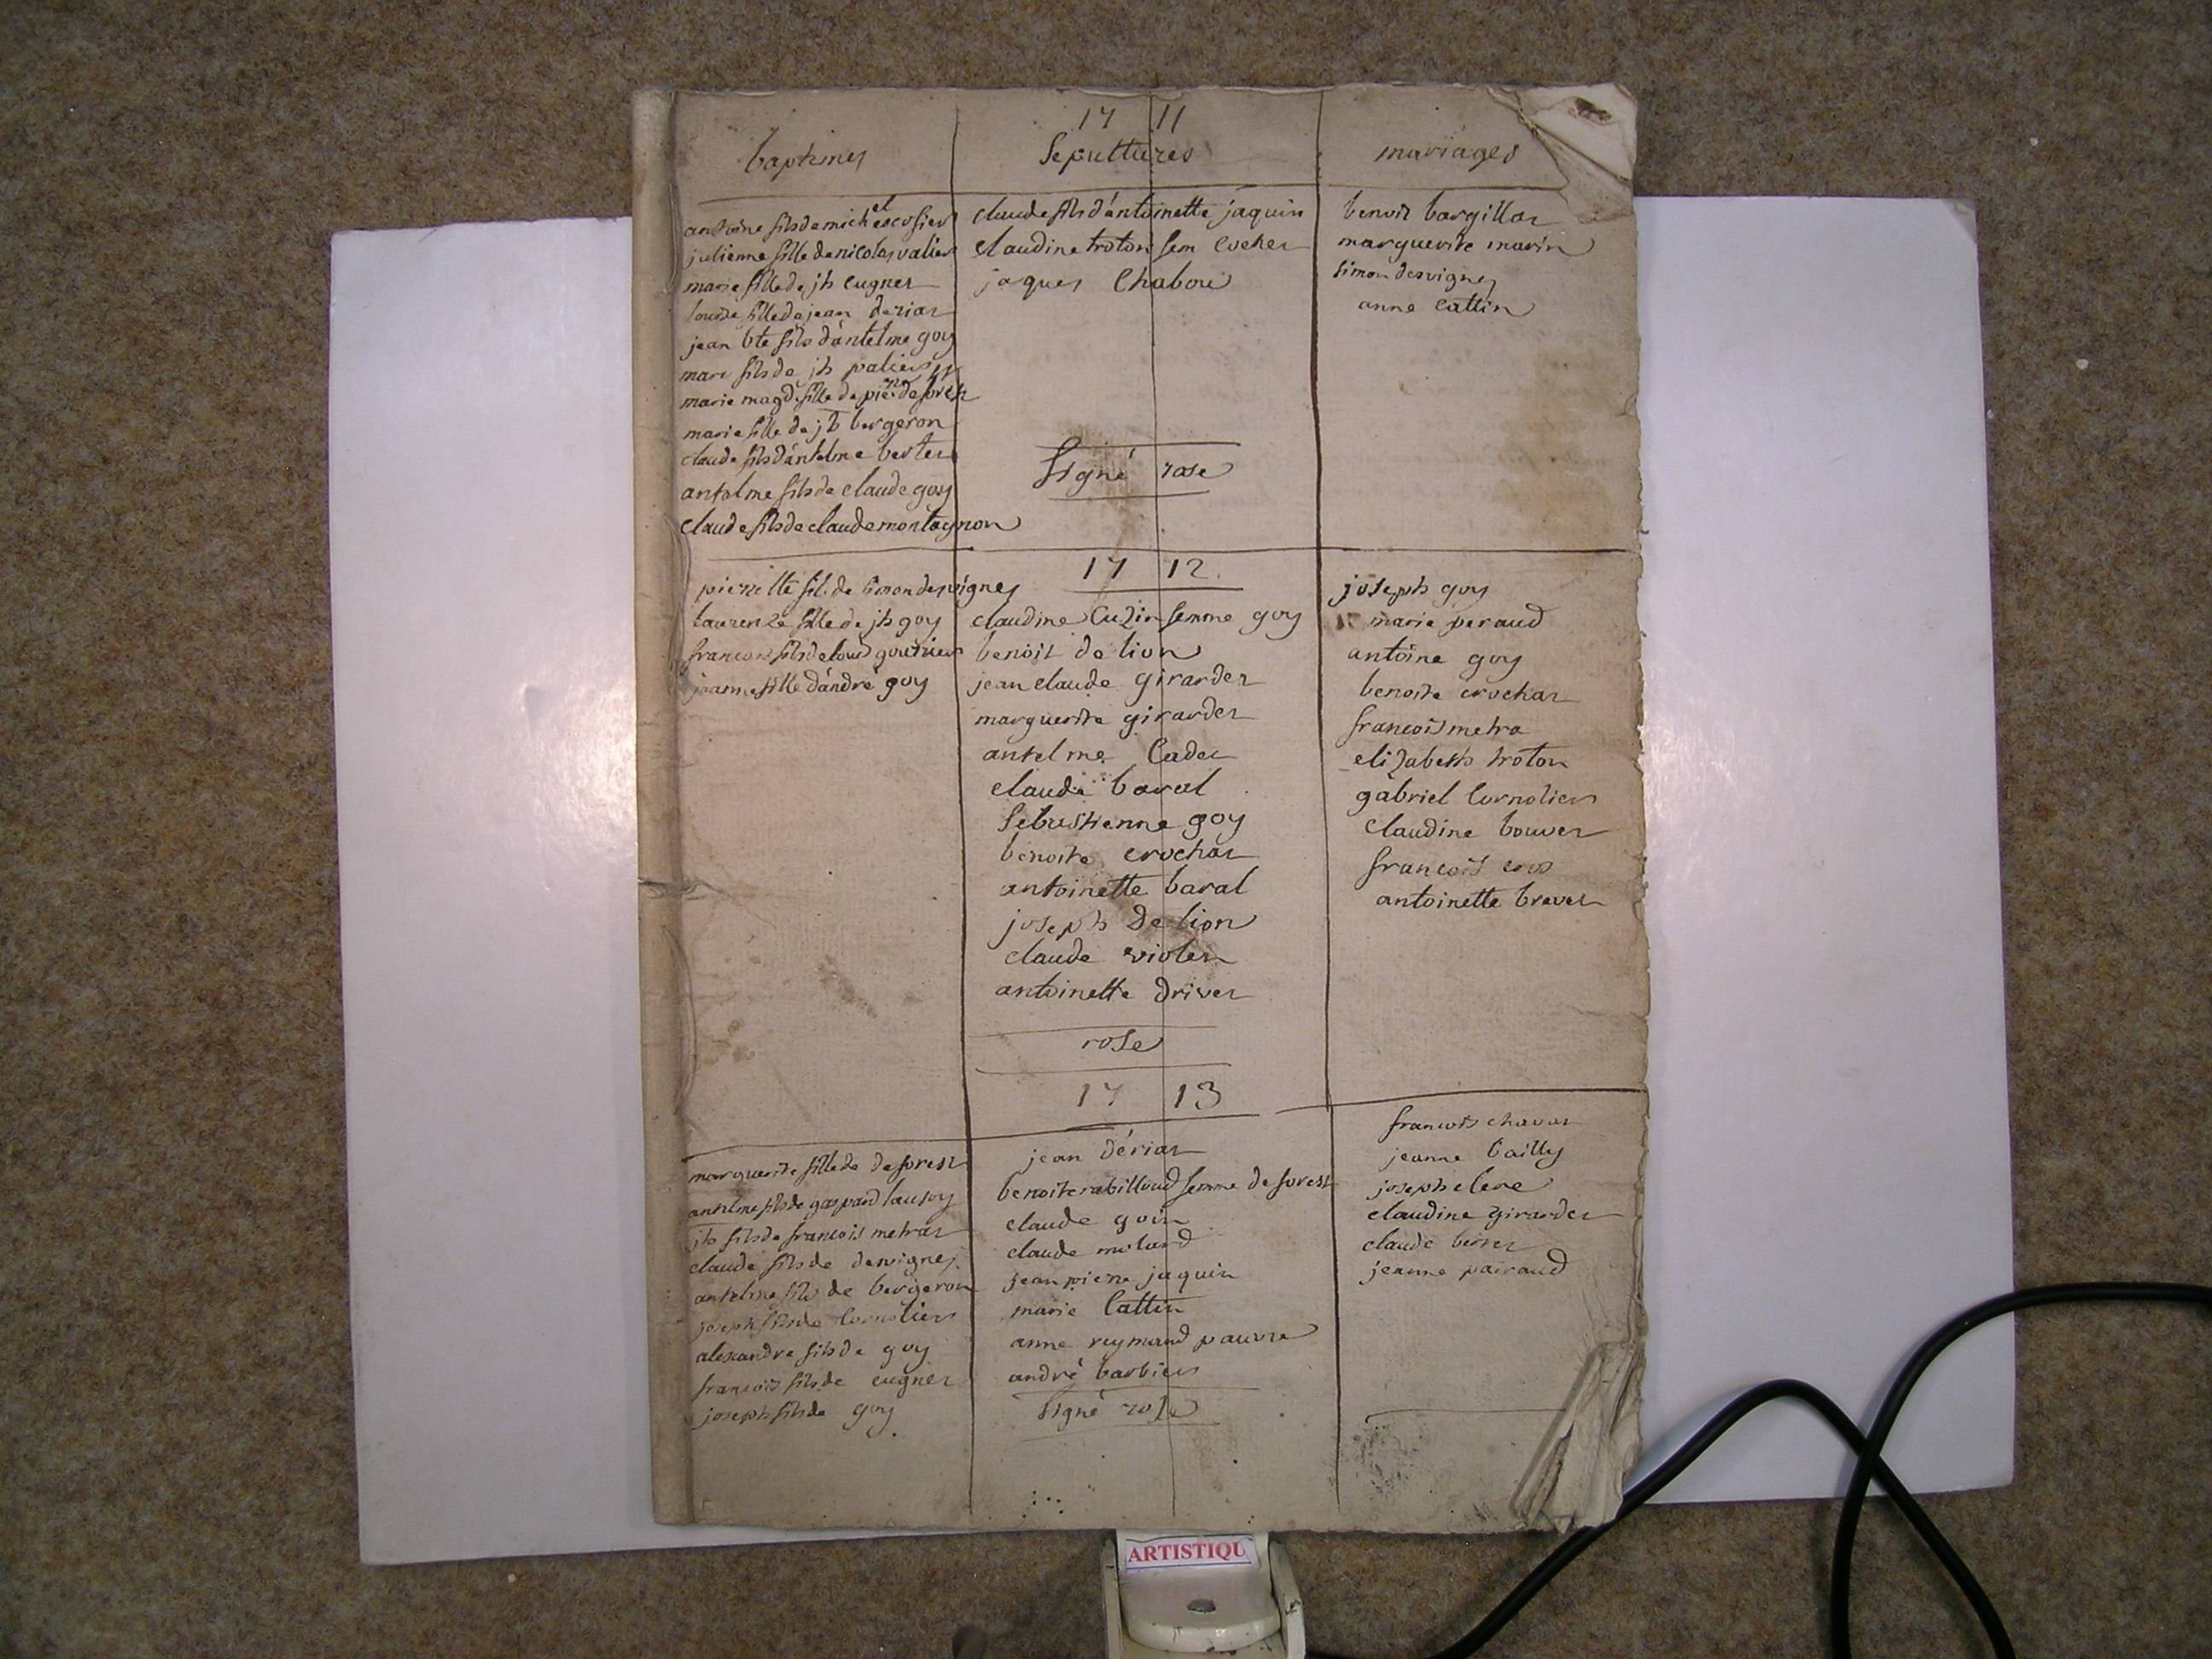 17 11
baptimes
Sepultures
mariages
antoine fils de michel escofier
julienne fille de nicolas valier
marie fille de jh cugnet
louise fille de jean deriat
jean bte fils d'antelme goy
marc fils de jh
marie magd. fille de pierre deforest
marie fille de jh bergeron
claude fils d'antelme bertet
antelme fils de claude goy
claude fils de claude montagnon
claude fils d'antoinette jaquin
claudine troton fem cochet
jaques Chabou
Signé rose
benoit bargillat
marguerite marin
simon desvignes
anne Cattin
17 12
pierrette fil. de simon desvignes
laurence fille de jh goy
francois fils de louis
jeanne fille d'andré goy
claudine Cuzin femme goy
benoit de lion
jean claude girardet
marguerite girardet
antelme Cadet
claude baral
Sebastienne goy
benoite crochat
antoinette baral
joseph de lion
claude violet
antoinette drivet
rose
joseph goy
marie peraud
antoine goy
benoite crochat
francois metra
elizabeth troton
gabriel Cornolier
claudine bouvet
francois cros
antoinette brevet
17 13
marguerite fille de deforest
antelme fils de gaspard laufoy
jh fils de francois metrat
claude fils de desvignes
antelme fils de bergeron
joseph fils de Cornolier
alexandre fils de goy
francois fils de cugnet
joseph fils de goy
jean dériat
benoite rabilloud femme deforest
claude goin
claude molard
jean pierre jaquin
marie Cattin
anne reymand pauvre
andré barbier
Signé rose
francois chavat
jeanne bailly
joseph clere
claudine girardet
claude
jeanne pairaud
ARTISTIQU